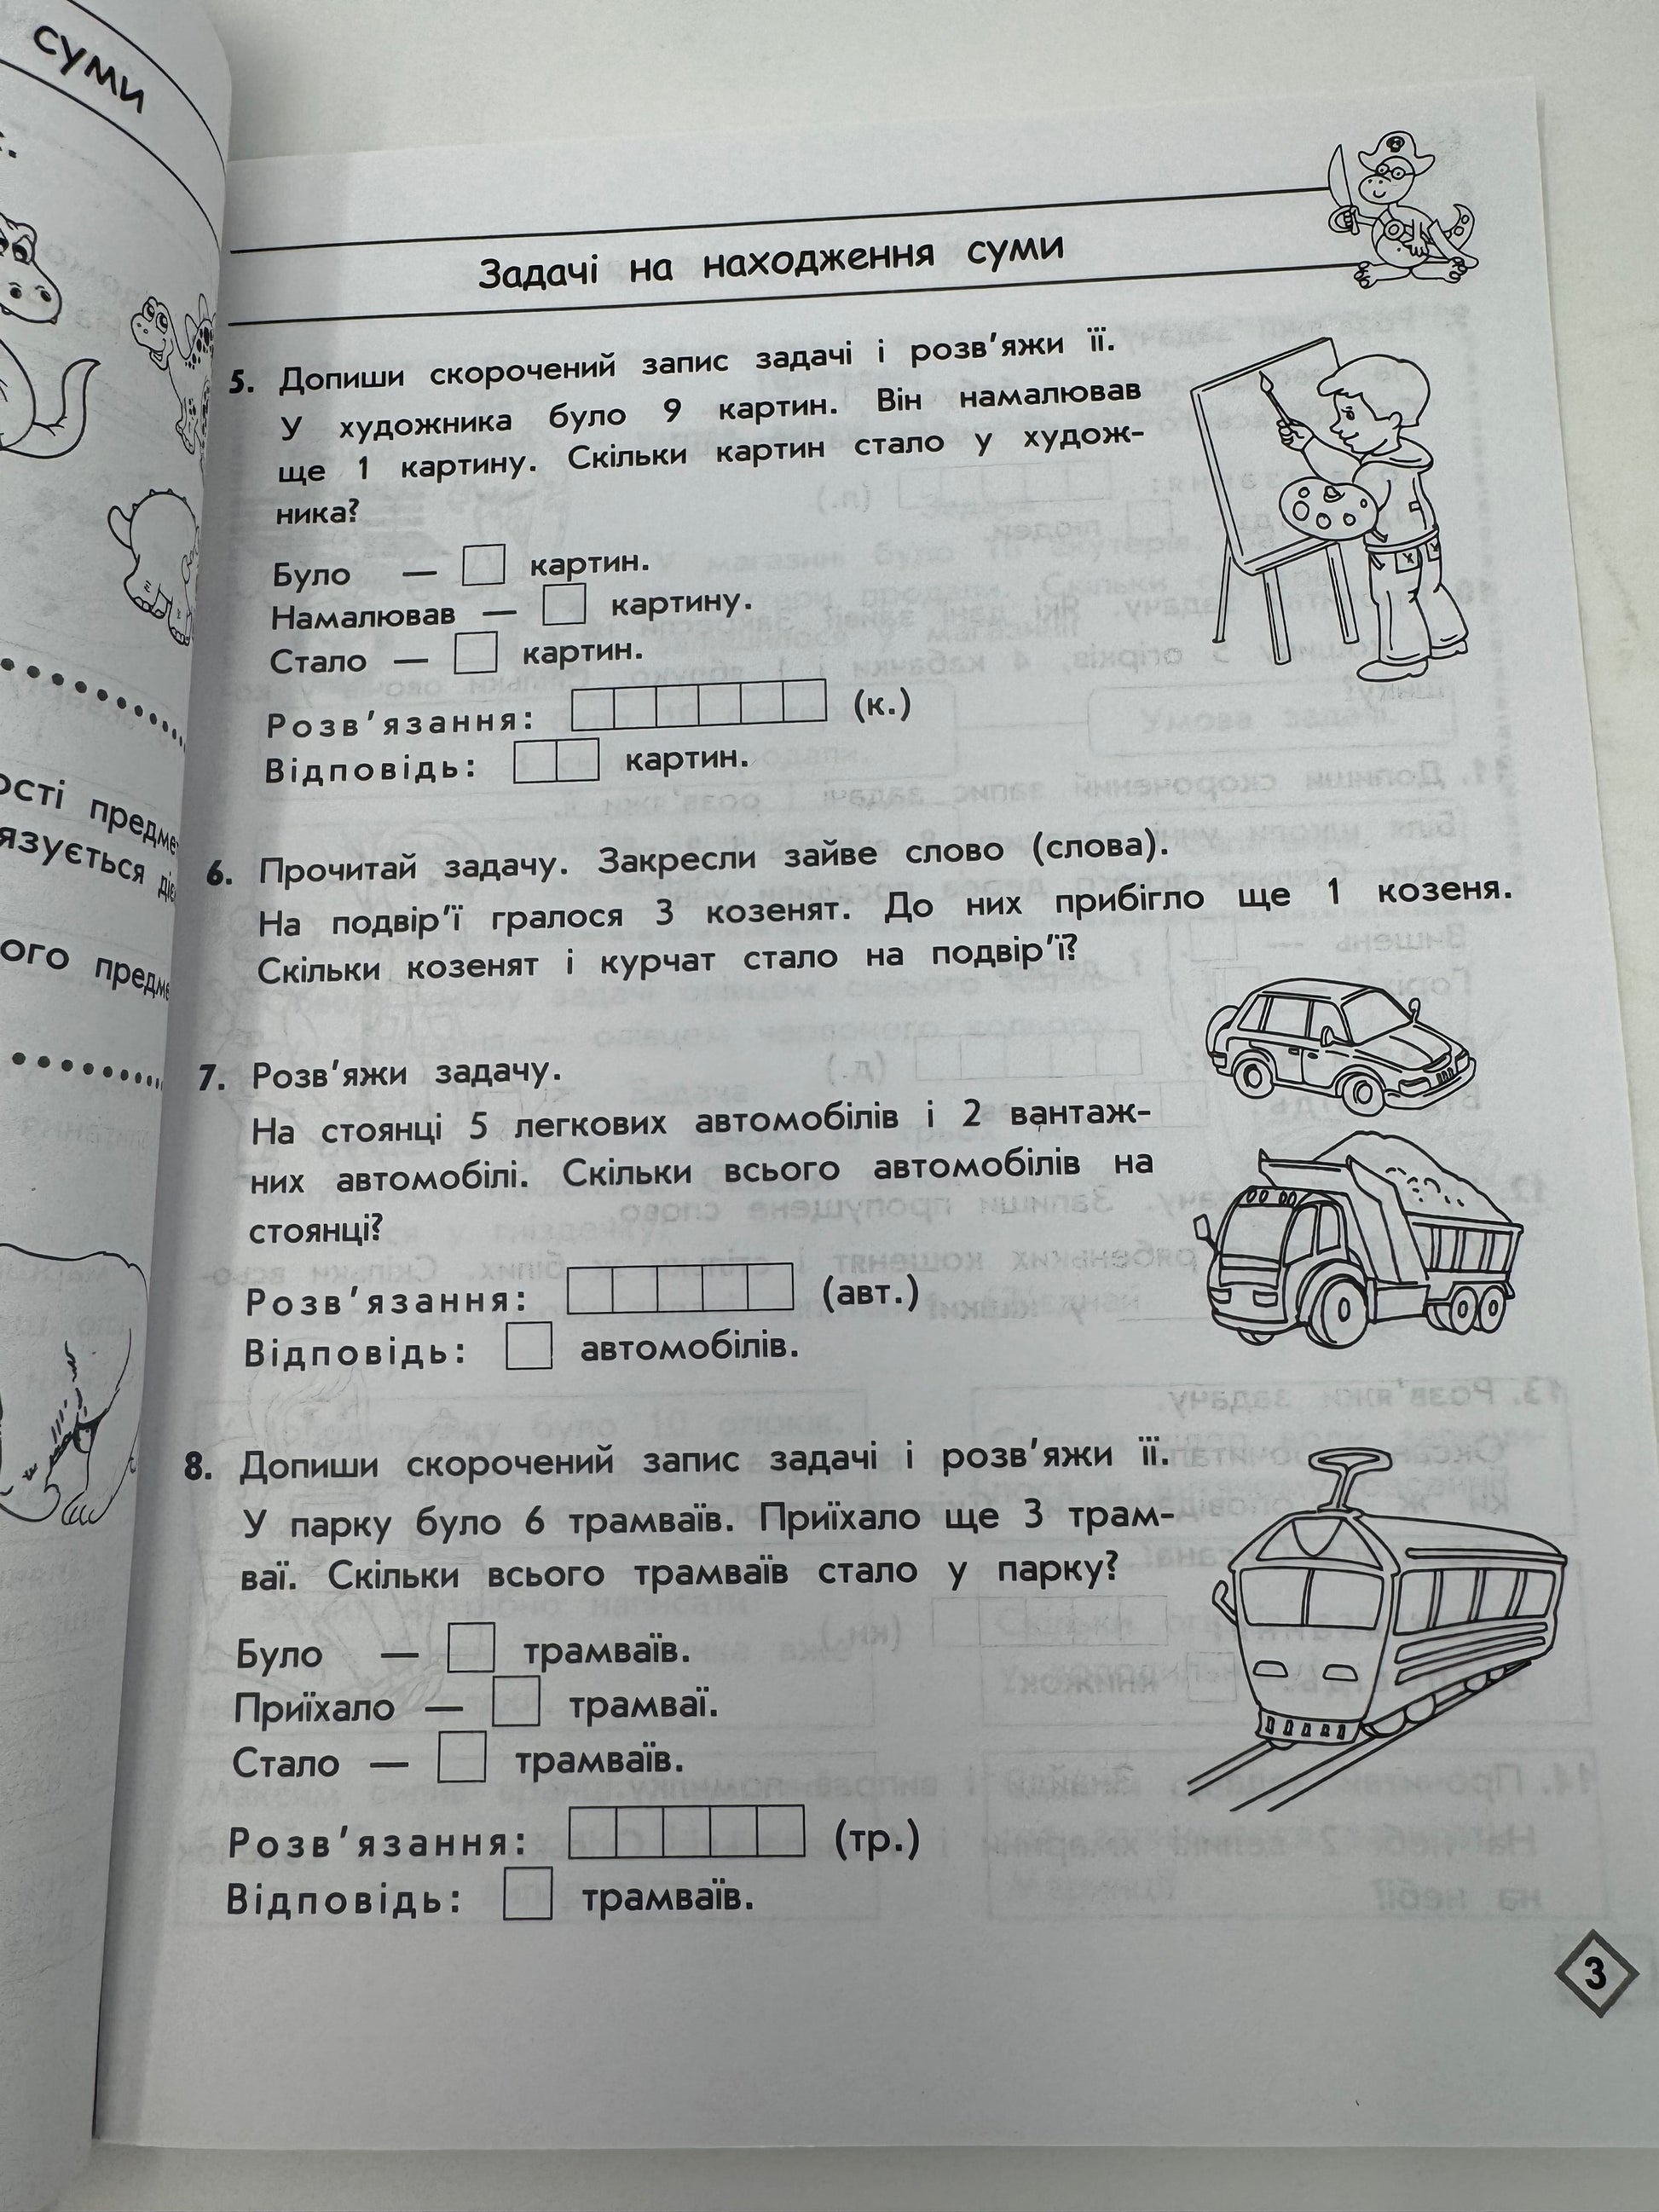 суми
ості предме
язується
ого предме
Задачі на находження суми
5. Допиши скорочений запис задачі і розв'яжи її.
У художника було 9 картин. Він намалював
ще 1 картину. Скільки картин стало у худож-
ника?
Було — картин.
Намалював — картину.
Стало — картин.
Розв'язання: (к.)
Відповідь: картин.
6. Прочитай задачу. Закресли зайве слово (слова).
На подвір'ї гралося 3 козенят. До них прибігло ще 1 козеня.
Скільки козенят і курчат стало на подвір'ї?
7. Розв'яжи задачу.
На стоянці 5 легкових автомобілів і 2 вантаж-
них автомобілі. Скільки всього автомобілів на
стоянці?
Розв'язання: (авт.)
Відповідь: автомобілів.
8. Допиши скорочений запис задачі і розв'яжи її.
У парку було 6 трамваїв. Приїхало ще 3 трам-
ваї. Скільки всього трамваїв стало у парку?
Було — трамваїв.
Приїхало — трамваї.
Стало — трамваїв.
Розв'язання: (тр.)
Відповідь: трамваїв.
3